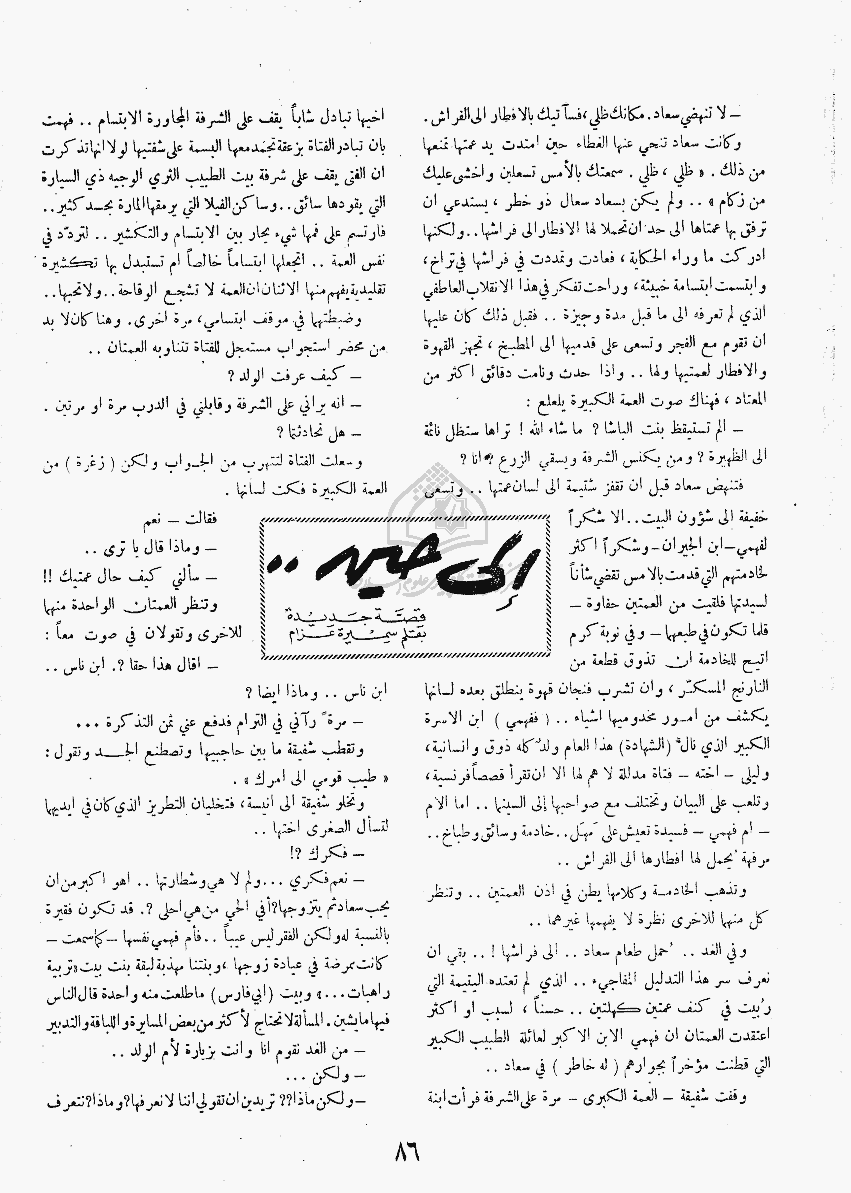 – لا تنهضي سعاد. مكانك ظلي، فسآتيك بالافطار الى الفراش.
وكانت سعاد تنحي عنها الغطاء حين امتدت يد عمتها تمنعها
من ذلك. « ظلي ، ظلي . سمعتك بالأمس تسعلين واخشى عليك
من زكام » .. ولم يكن بسعاد سعال ذو خطر ، يستدعي ان
ترفق بها عمتاها الى حد ان تحملا لها الافطار الى فراشها.. ولكنها
ادركت ما وراء الحكاية ، فعادت وتمددت في فراشها في تراخ،
وابتسمت ابتسامة خبيثة، وراحت تفكر في هذا الانقلاب العاطفي
الذي لم تعرفه الى ما قبل مدة وجيزة .. فقبل ذلك كان عليها
ان تقوم مع الفجر وتسعى على قدميها الى المطبخ ، تجهز القهوة
والافطار لعمتيها ولها .. واذا حدث ونامت دقائق اكثر من
المعتاد ، فهناك صوت العمة الكبيرة يلعلع :
– الم تستيقظ بنت الباشا ? ما شاء الله ! تراها ستظل نائمة
الى الظهيرة ? ومن يكنس الشرفة ويسقي الزرع ? انا ?
فتنهض سعاد قبل ان تقفز شتيمة الى لسان عمتها .. وتسعى
خفيفة الى شؤون البيت .. الا شكراً
لفهمي – ابن الجيران – وشكراً اكثر
لخادمتهم التي قدمت بالامس تقضي شأناً
لسيدتها فلقيت من العمتين حفاوة –
قلما تكون في طبعها – وفي نوبة كرم
اتيح للخادمة ان تذوق قطعة من
النارنج المسكر ، وان تشرب فنجان قهوة ينطلق بعده لسانها
يكشف من امور مخدوميها اشياء .. ( ففهمي ) ابن الاسرة
الكبير الذي نال (الشهادة) هذا العام ولد كله ذوق وانسانية،
وليلى – اخته – فتاة مدللة لا هم لها الا ان تقرأ قصصاً فرنسية،
وتلعب على البيان وتختلف مع صواحبها إلى السينما .. اما الام
– ام فهمي – فسيدة تعيش على مهل .. خادمة وسائق وطباخ ..
مرفهة يحمل لها افطارها الى الفراش ..
وتذهب الخادمة وكلامها يطن في اذن العمتين .. وتنظر
كل منها للاخرى نظرة لا يفهمها غيرهما ..
وفي الغد .. حمل طعام سعاد .. الى فراشها ! .. بقي ان
نعرف سر هذا التدليل المفاجيء .. الذي لم تعتده اليتيمة التي
رُبيت في كنف عمتين كهلتين .. حسناً ، لسبب او اكثر
اعتقدت العمتان ان فهمي الابن الاكبر لعائلة الطبيب الكبير
التي قطنت مؤخراً بجوارهم ( له خاطر ) في سعاد ..
وقفت شفيقة – العمة الكبرى – مرة على الشرفة فرأت ابنة
اخيها تبادل شاباً يقف على الشرفة المجاورة الابتسام .. فهمت
بان تبادر الفتاة بزعقة تجمد معها البسمة على شفتيها لولا انها تذكرت
ان الفتى يقف على شرفة بيت الطبيب الثري الوجيه ذي السيارة
التي يقودها سائق .. وساكن الفيلا التي يرمقها المارة بحسد كثير ..
فارتسم على فمها شيء يحار بين الابتسام والتكشير .. لتردّد في
نفس العمة .. اتجعلها ابتساماً خالصاً ام تستبدل بها تكشيرة
تقليدية يفهم منها الاثنان ان العمة لا تشجع الوقاحة .. ولا تحبها ..
وضبطتها في موقف ابتسامي، مرة اخرى. وهنا كان لا بد
من محضر استجواب مستعجل للفتاة تتناوبه العمتان ..
– كيف عرفت الولد ?
– انه يراني على الشرفة وقابلني في الدرب مرة او مرتين .
– هل تحادثتما ?
وسعلت الفتاة لتتهرب من الجواب ولكن ( زغرة ) من
العمة الكبيرة فكت لسانها .
فقالت – نعم
– وماذا قال يا ترى ..
– سألني كيف حال عمتيك !!
وتنظر العمتان الواحدة منهما
للاخرى وتقولان في صوت معاً :
– اقال هذا حقا ?. ابن ناس ..
ابن ناس .. وماذا ايضا ?
– مرة رآني في الترام فدفع عني ثمن التذكرة ...
وتقطب شفيقة ما بين حاجبيها وتصطنع الجد وتقول :
« طيب قومي الى امرك » .
وتخلو شفيقة الى انيسة، فتخليان التطريز الذي كان في ايديها
لتسأل الصغرى اختها ..
– فكرك ?!
– نعم فكري ... ولم لا هي وشطارتها .. اهو اكبر من ان
يحب سعاد ثم يتزوجها? أفي الحي من هي احلى ?. قد تكون فقيرة
بالنسبة له ولكن الفقر ليس عيباً .. فأم فهمي نفسها – كما سمعت –
كانت ممرضة في عيادة زوجها ، وبنتنا مهذبة لبقة بنت بيت « تربية
راهبات ... » وبيت (ابي فارس) ما طلعت منه واحدة قال الناس
فيها ما يشين. المسألة لا تحتاج لأكثر من بعض المسايرة واللباقة والتدبير
– من الغد نقوم انا وانت بزيارة لأم الولد ..
– ولكن ...
– ولكن ماذا?? تريدين ان تقولي اننا لا نعرفها? وماذا? نتعرف
إلى حين ..
قصة جديدة
بقلم سميرة عزام
٨٦